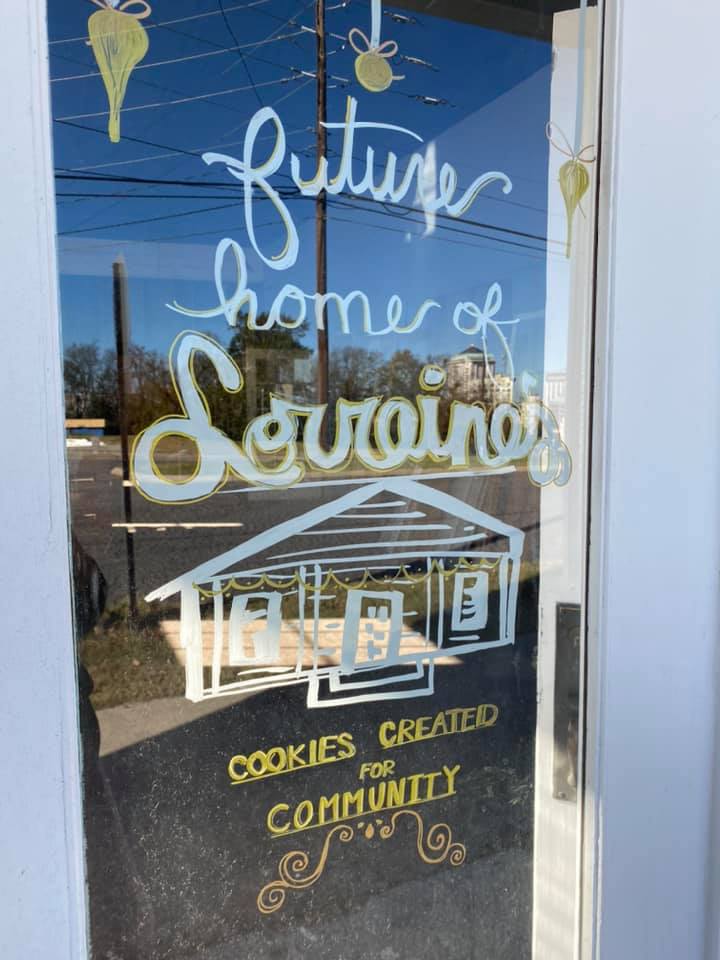 future
home of
Lorraine's
COOKIES CREATED
FOR
COMMUNITY